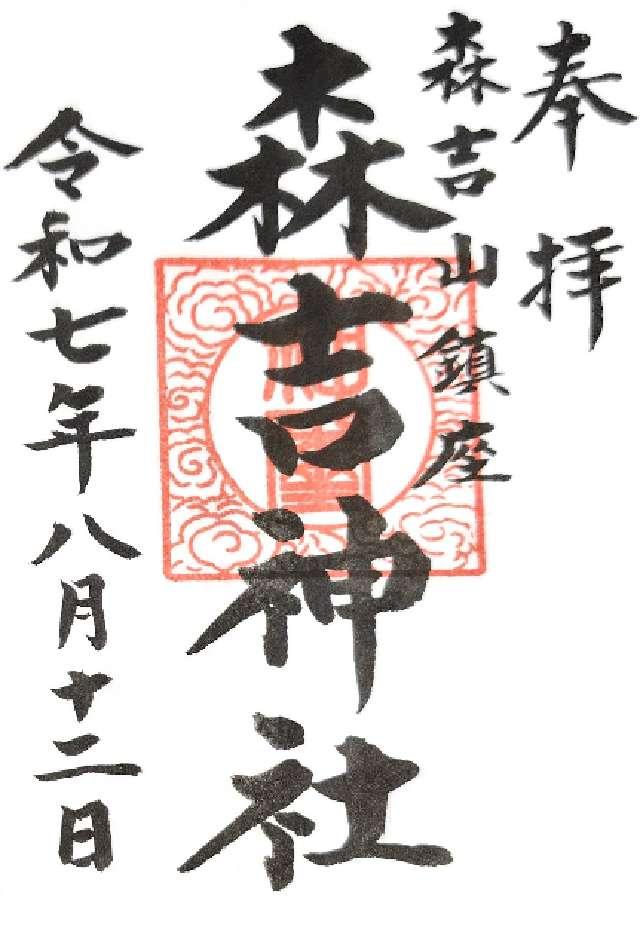 奉拝
森吉山鎮座
森吉神社
令和七年八月十二日